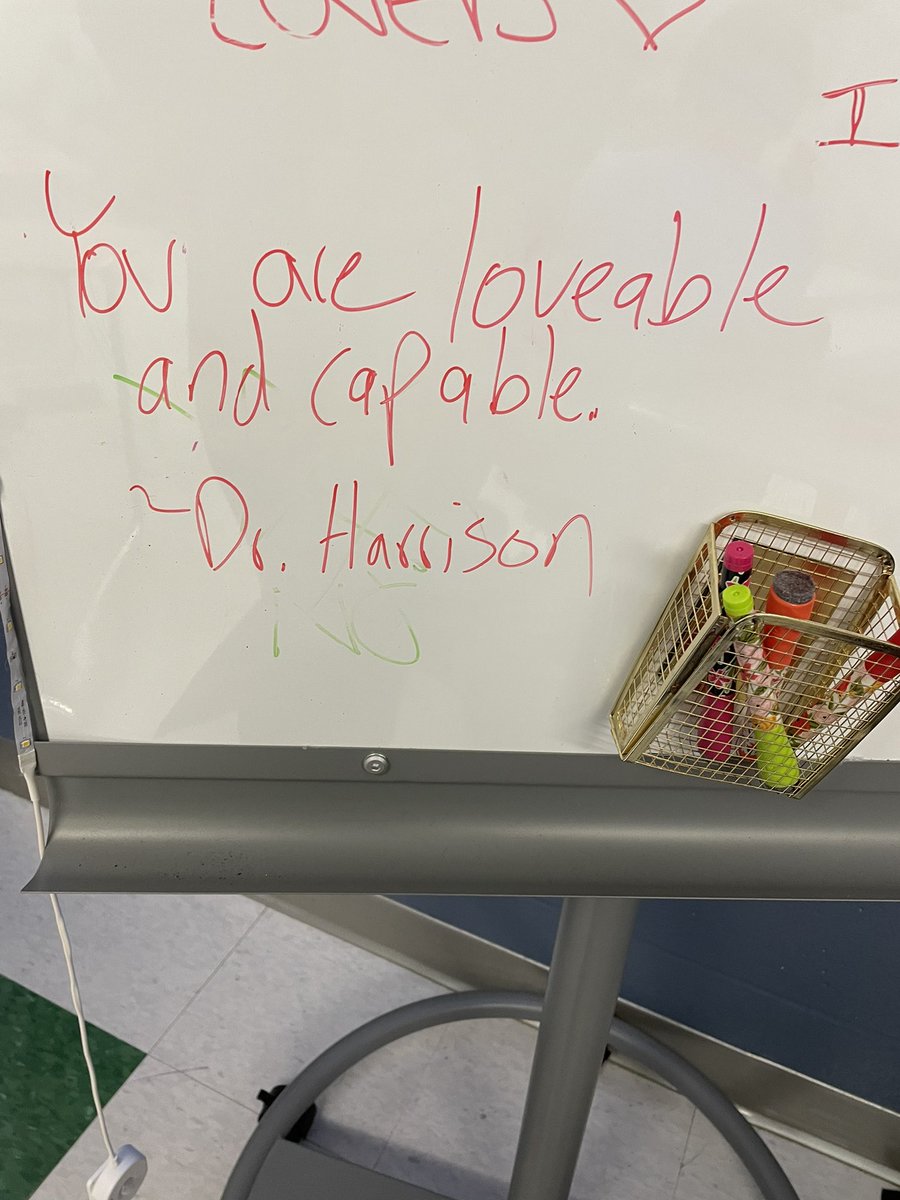 I
You are loveable
and capable.
~Dr. Harrison